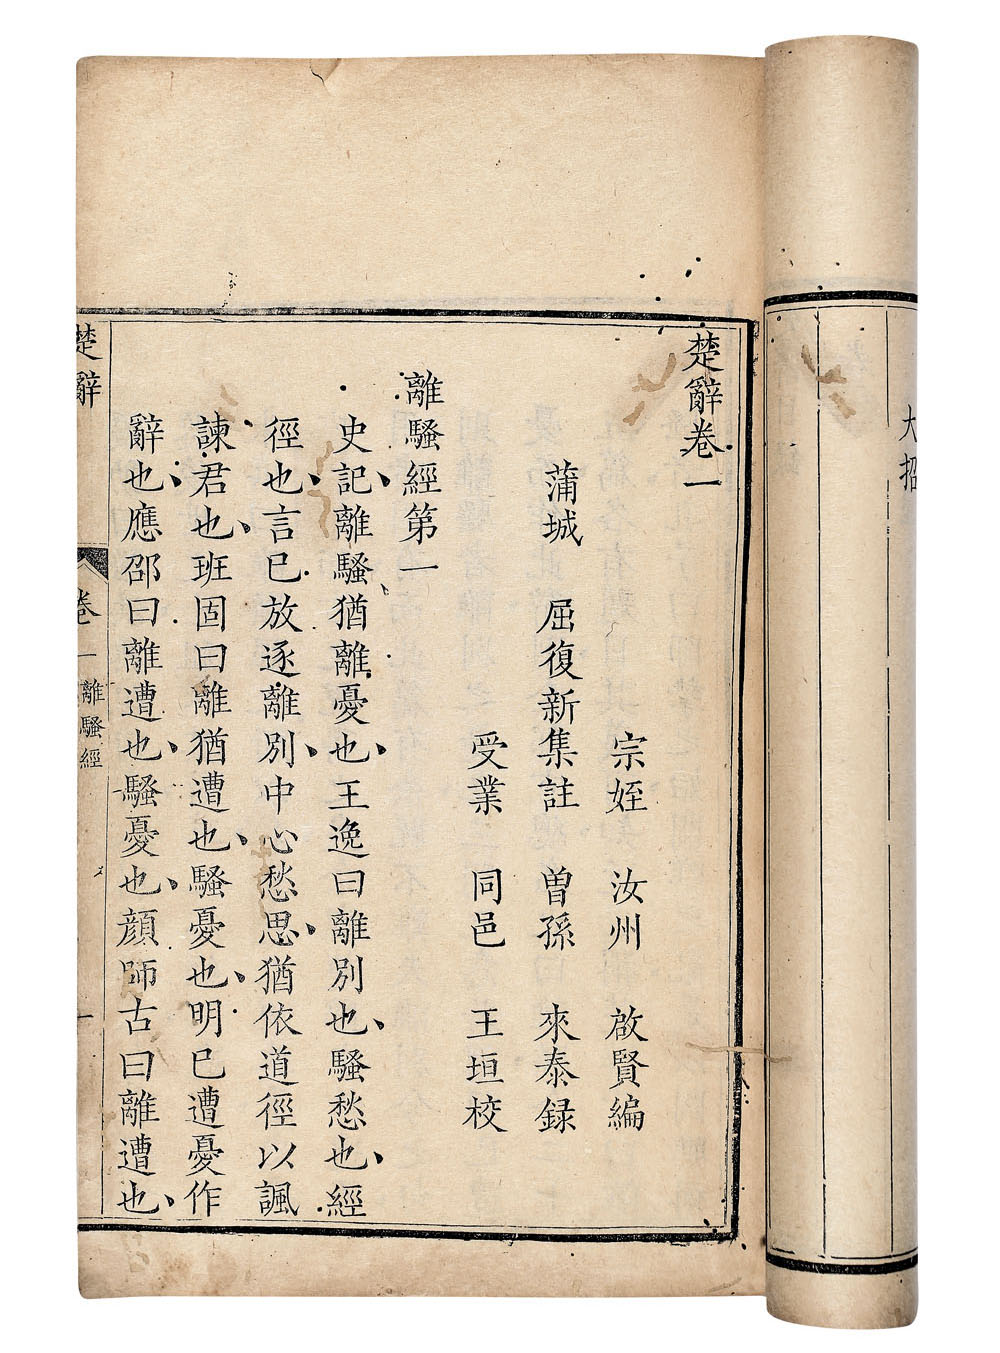 大招
楚辭卷一
宗姪 汝州 啟賢編
蒲城 屈復新集註 曽孫 來泰録
受業 同邑 王垣校
離騷經第一
史記離騷猶離憂也王逸曰離別也騷愁也經
徑也言已放逐離別中心愁思猶依道徑以諷
諫君也班固曰離猶遭也騷憂也明已遭憂作
辭也應邵曰離遭也騷憂也顔師古曰離遭也
楚辭 卷一 離騷經 一